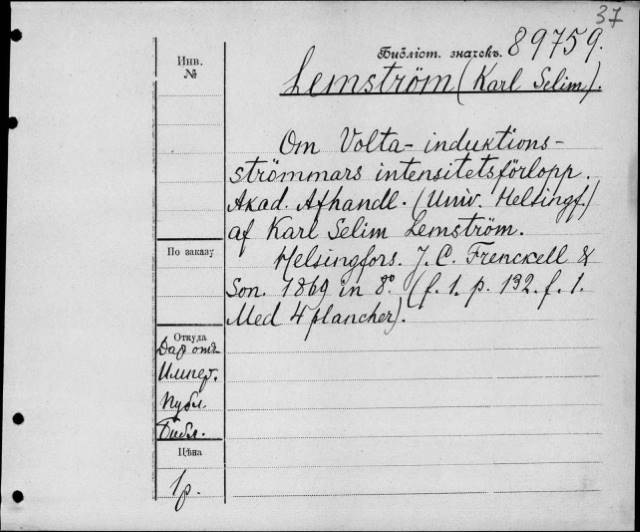 37
Библіот. значекъ. 89759.
Инв.
№
Lemström (Karl Selim).
Om Volta-induktions-
strömmars intensitetsförlopp.
Akad. Afhandl. (Univ. Helsingf.)
af Karl Selim Lemström.
По заказу
Helsingfors. J. C. Frenckell &
Son. 1869 in 8º. (f. 1. p. 132. f. 1.
Med 4 plancher).
Откуда
Дар отд.
Импер.
Публ.
Библ.
Цѣна
1р.